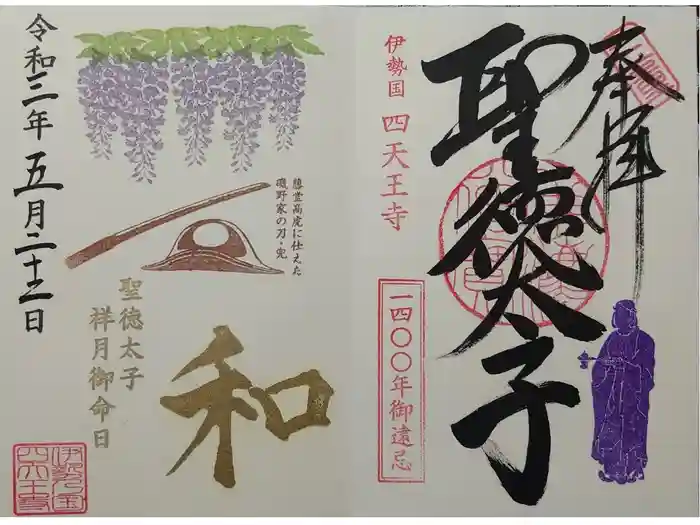 奉拝
聖徳太子
伊勢国 四天王寺
一四〇〇年御遠忌
藤堂高虎に仕えた
磯野家の刀・兜
和
聖徳太子
祥月御命日
令和三年五月二十二日
伊勢国
四天王寺